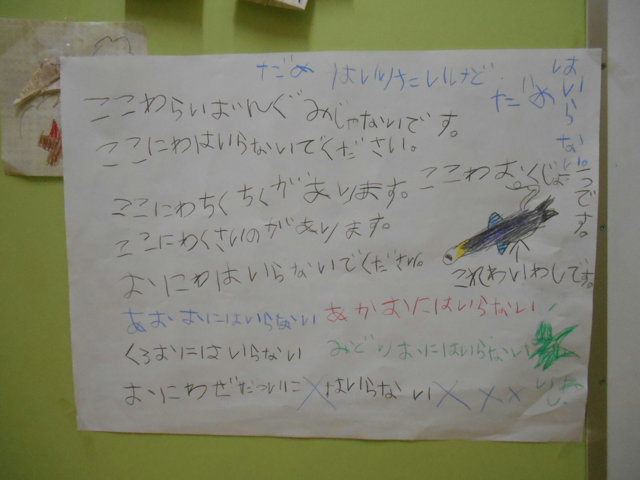 だめ はいりたいけど だめ
はいらない。
ここわらいばんぐみじゃないです。
ここにわはいらないでください。
ここわおくじょうです。
ここにわちくちくがあります。
ここにわくさいのがあります。
おにわはいらないでください。
これわいわしです。
あおおにはいらない あかおにはいらない
くろおにはいらない みどりおにはいらない
おにわぜったいに×はいらない×××